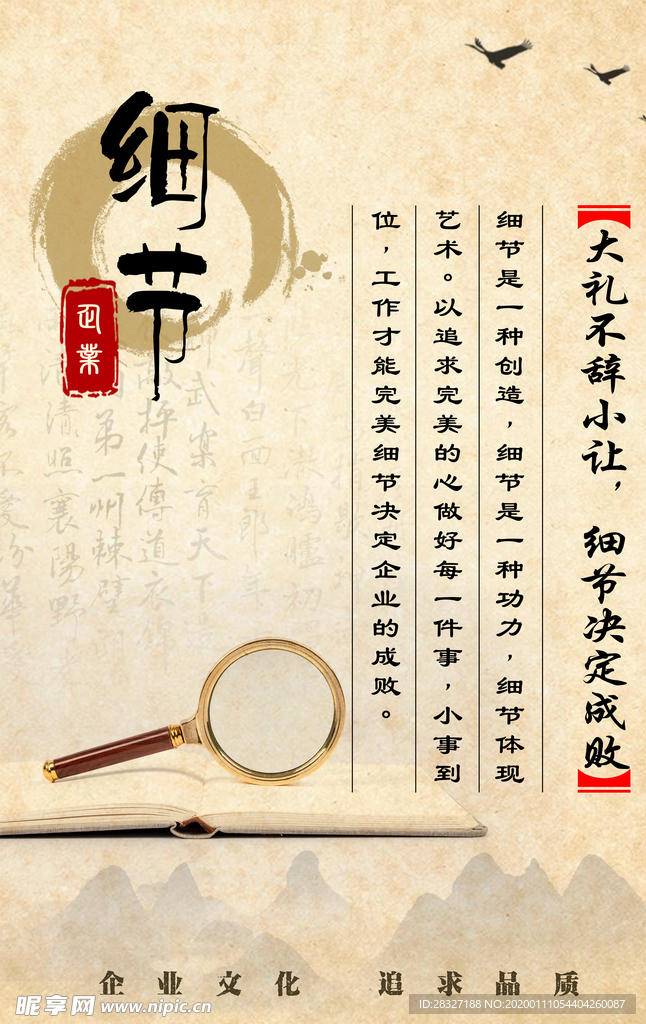 细节
企業
【大礼不辞小让，细节决定成败】
细节是一种创造，细节是一种功力，细节体现
艺术。以追求完美的心做好每一件事，小事到
位，工作才能完美细节决定企业的成败。
企业文化 追求品质
昵享网 www.nipic.cn
ID:28327188 NO:20200111054404260087